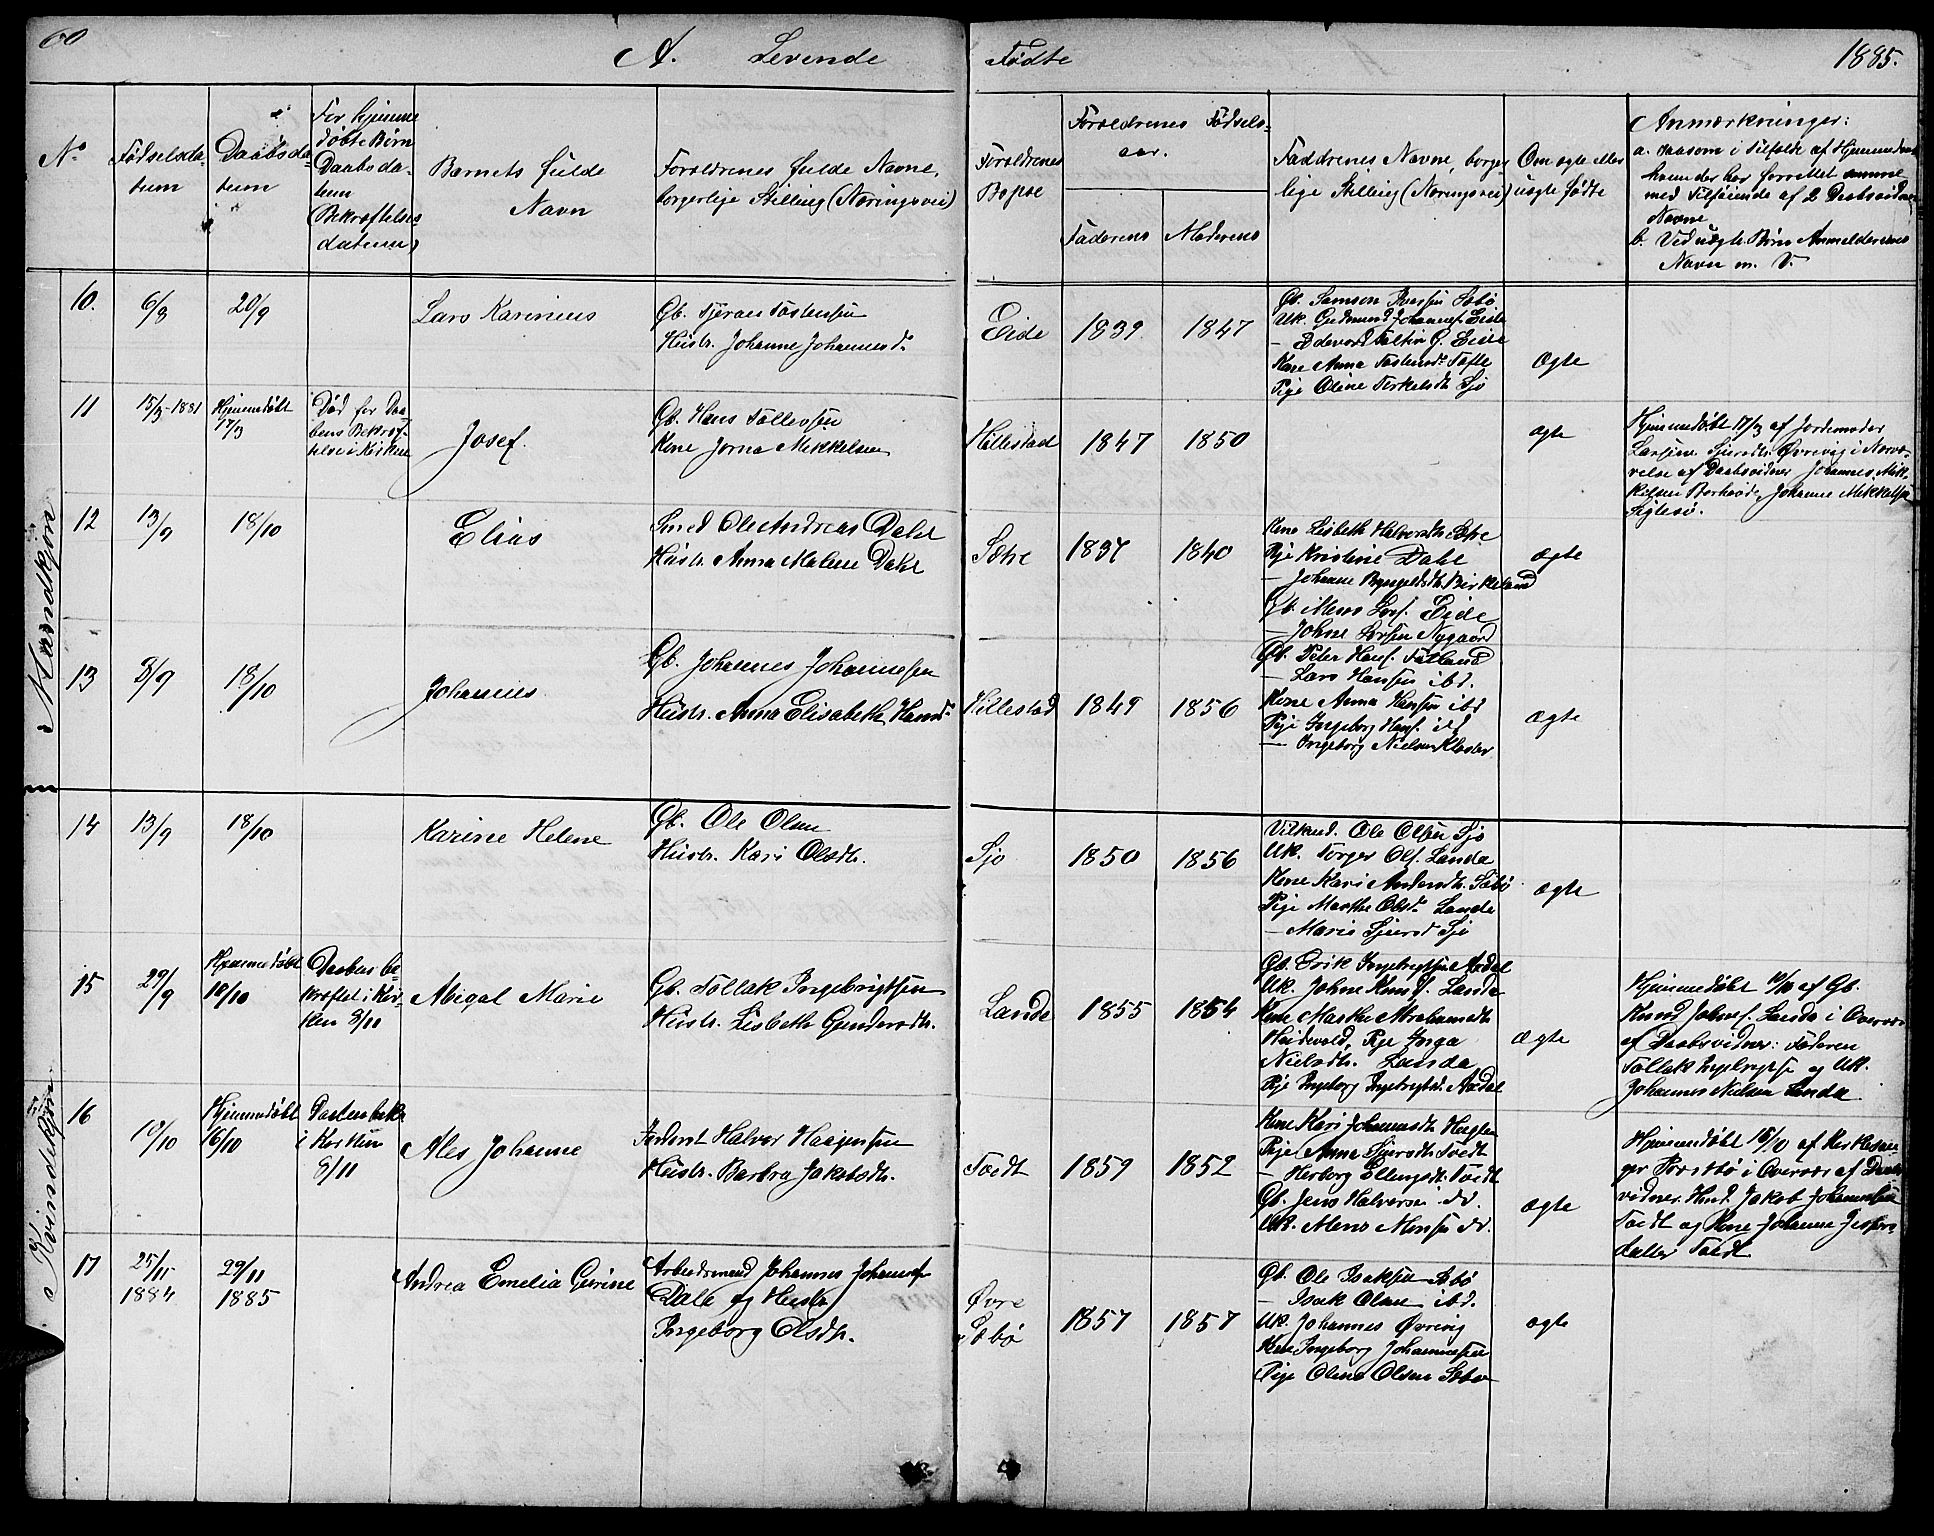 60
A. Levende Fødte 1885.
No
Fødselsda-
tum
Daabsda-
tum
For hjemme
døbte Børn
Daabsda-
tum
Bekræftelses
datum
Barnets fulde
Navn
Forældrenes fulde Navne,
borgerlige Stilling (Næringsvei)
Forældrenes
Bopæl
Forældrenes Fødsels-
aar.
Faderens
Moderens
Faddrenes Navne, borger
lige Stilling (Næringsvei)
Om ægte eller
uægte fødte
Anmærkninger:
a. saasom i Tilfælde af Hjemmedaab
hvem der har forrettet samme
med Tilføiende af 2 Daabsvidners
Navne
b. Ved uægte Børn Anmelderens
Navn m. V.
Mandkjøn
10.
6/8
20/9
Lars Karinius
Gb. Tjeran Tostensen
Hustr. Johanne Johannesd.
Eide
1839
1847
Gb. Samson Iversen Sæbø
Uk. Gudmund Johannes. Eide
Kone Anna Tostensd. Tofte
Pige Oline Terkelsdtr. Sjo
Ægte
11
15/3-1881
Hjemmedøbt
17/3
Død før Daa-
bens Bekræf-
telse i Kirken
Josef.
Gb. Hans Tollevsen
Kone Jorna Mikkelsen
Hillestad
1847
1850
ægte
Hjemmedøbt 17/3 af Jordemoder
Øvrevig i Nærvæ-
relse af Daabsvidner Johannes Mik-
kelsen Johanne Mikkelsen
12
13/9
18/10
Elias
Smed Ole Andreas Dahl
Hustr. Anna Malene Dahl
Sætre
1837
1840
Kone Lisbeth Halvorsdtr. Sætre
Pige Kristine Dahl
— Johanne Birkeland
Gb. Mons Lars. Eide
— Johne Larsen Nygaard
Ægte
13
3/9
18/10
Johannes
Gb. Johannes Johannesen
Hustr. Anna Elisabeth Hansd.
Hillestad
1849
1856
Gb. Peter Hans. Fatland
— Lars Hansen ibd.
Kone Anna Hansen ibd
Pige Ingeborg Hans. ibd
— Ingeborg Nielsen Kloster
Ægte
Kvindekjøn
14
13/9
18/10
Karine Helene
Gb. Ole Olsen
Hustr. Kari Olsdtr.
Sjo
1850
1856
Ole Olsen Sjo
Uk. Torger Ols. Landa
Kone Kari Andersdtr. Sæbø
Pige Marthe Olsd. Landa
— Marie Sjursd Sjo
Ægte
15
29/9
Hjemmedøbt
10/10
Daaben be-
kræftet i Kir-
ken 8/11
Abigal Marie
Gb. Tollak Ingebrigtsen
Hustr. Lisbeth Gundersdtr.
Lande
1855
1854
Gb. Erik Ingebrigtsen Aadal
Uk. Johne Knuds. Landa
Kone Marthe Abrahamsdtr
Heidevold, Pige Inga
Nielsdtr. Landa
Pige Ingeborg Ingebrigtsd. Aadal
Ægte
Hjemmedøbt 10/10 af Gb.
Knud Johnes. Landa i Overvær
af Daabsvidner: Faderen
Tollak Ingebrigtsen og Uk.
Johannes Nielsen Landa
16
10/10
Hjemmedøbt
16/10
Daaben bekr.
i Kirken
8/11
Ales Johanne
Halvor Haagensen
Hustr. Barbra Jakobsdtr.
Tvedt
1859
1852
Kone Kari Johannesdtr.
Pige Anna Sjursdtr. Tvedt
— Herborg Ellingsdtr. Tvedt
Gb. Jens Halvorsen ibd.
Uk. Mons Monsen ibd.
Ægte
Hjemmedøbt 16/10 af Kirkesan-
ger i Overvær af Daabs-
vidner Jakob Johannesen
Tvedt og Kone Johanne
Tvedt
17
25/11
1884
29/11
1885
Andrea Emelia Gurine
Arbeidsmand Johannes Johannes.
Dale og Hustr.
Ingeborg Olsdtr.
Øvre
Sæbø
1857
1857
Gb. Ole Isaksen Sæbø
— Isak Olsen ibd.
Uk. Johannes Øvrevig
Kone Ingeborg Johannesen
Pige Olena Olsen Sæbø
ægte